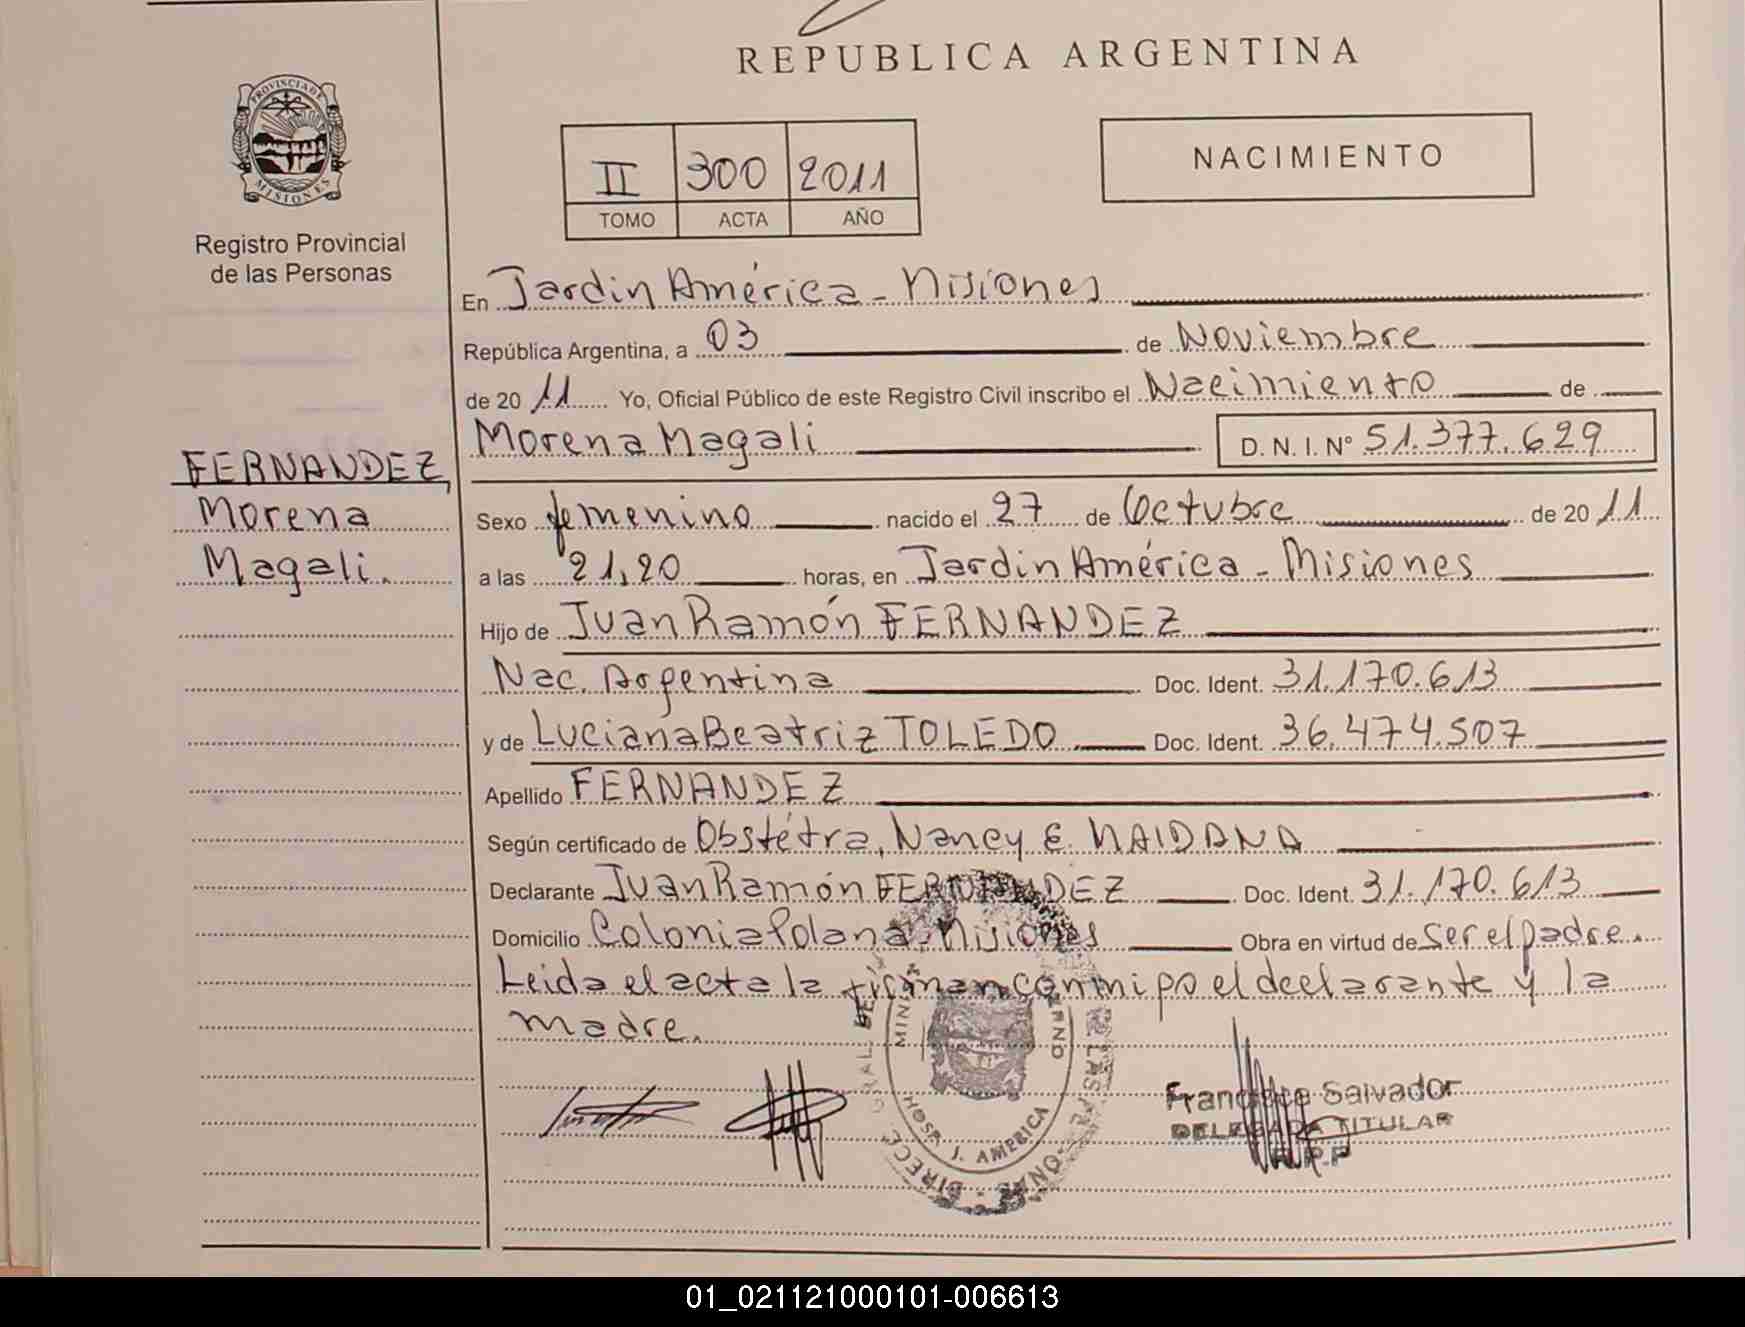 REPUBLICA ARGENTINA
PROVINCIA DE
MISIONES
Registro Provincial
de las Personas
II 300 2011
TOMO ACTA AÑO
NACIMIENTO
En Jardin América - Misiones
República Argentina, a 03 de Noviembre
de 2011 Yo, Oficial Público de este Registro Civil inscribo el Nacimiento de
Morena Magali D. N. I. Nº 51.377.629
FERNANDEZ,
Morena
Magali.
Sexo femenino nacido el 27 de Octubre de 2011
a las 21,20 horas, en Jardin América - Misiones
Hijo de Juan Ramón FERNANDEZ
Nac. Argentina Doc. Ident. 31.170.613
y de Luciana Beatriz TOLEDO Doc. Ident. 36.474.507
Apellido FERNANDEZ
Según certificado de Obstétra, Nancy E. MAIDANA
Declarante Juan Ramón FERNANDEZ Doc. Ident. 31.170.613
Domicilio Colonia Polana - Misiones Obra en virtud de ser el padre.
Leida el acta la firman conmigo el declarante y la
madre.
HOSP. J. AMERICA
Francisco Salvador
DELEGADA TITULAR
R.P.P
01_021121000101-006613